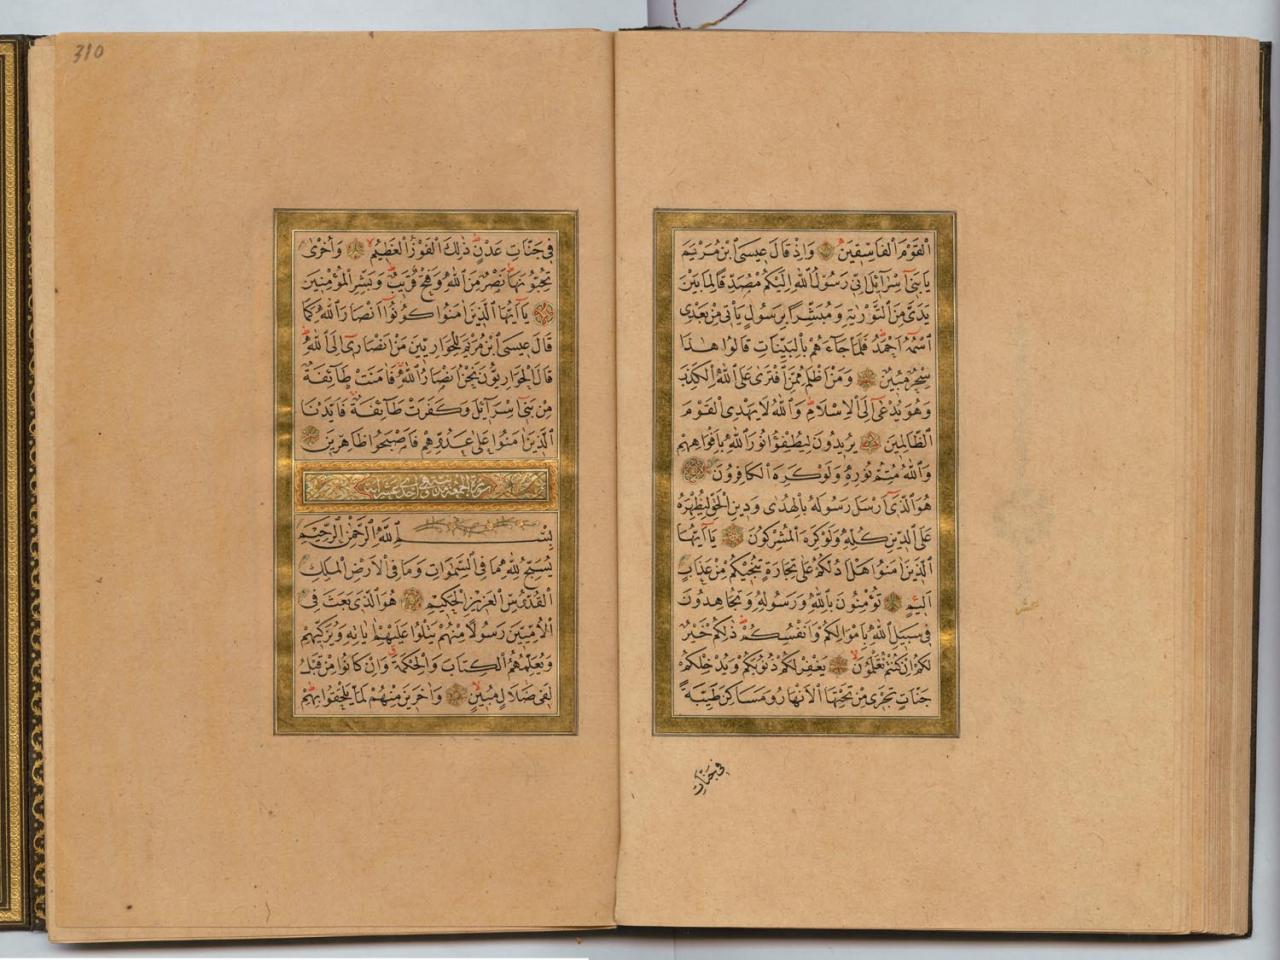 القوم الفاسقين واذ قال عيسى ابن مريم
يا بنى اسرآئل انى رسول الله اليكم مصدقا لما بين
يدى من التورية ومبشرا برسول يأتى من بعدى
اسمه احمد فلما جاءهم بالبينات قالوا هذا
سحر مبين ومن اظلم ممن افترى على الله الكذب
وهو يدعى الى الاسلام والله لا يهدى القوم
الظالمين يريدون ليطفؤا نور الله بافواههم
والله متم نوره ولو كره الكافرون
هو الذى ارسل رسوله بالهدى ودين الحق ليظهره
على الدين كله ولو كره المشركون يا ايها
الذين امنوا هل ادلكم على تجارة تنجيكم من عذاب
اليم تؤمنون بالله ورسوله وتجاهدون
فى سبيل الله باموالكم وانفسكم ذلكم خير
لكم ان كنتم تعلمون يغفر لكم ذنوبكم ويدخلكم
جنات تجرى من تحتها الانهار ومساكن طيبة
فى جنات
عشر
310
فى جنات عدن ذلك الفوز العظيم واخرى
تحبونها نصر من الله وفتح قريب وبشر المؤمنين
يا ايها الذين امنوا كونوا انصار الله كما
قال عيسى ابن مريم للحواريين من انصارى الى الله
قال الحواريون نحن انصار الله فامنت طآئفة
من بنى اسرآئل وكفرت طآئفة فايدنا
الذين امنوا على عدوهم فاصبحوا ظاهرين
سورة الجمعة مدنية وهى احدى عشر اية
بسم الله الرحمن الرحيم
يسبح لله ما فى السموات وما فى الارض الملك
القدوس العزيز الحكيم هو الذى بعث فى
الاميين رسولا منهم يتلوا عليهم اياته ويزكيهم
ويعلمهم الكتاب والحكمة وان كانوا من قبل
لفى ضلال مبين واخرين منهم لما يلحقوا بهم